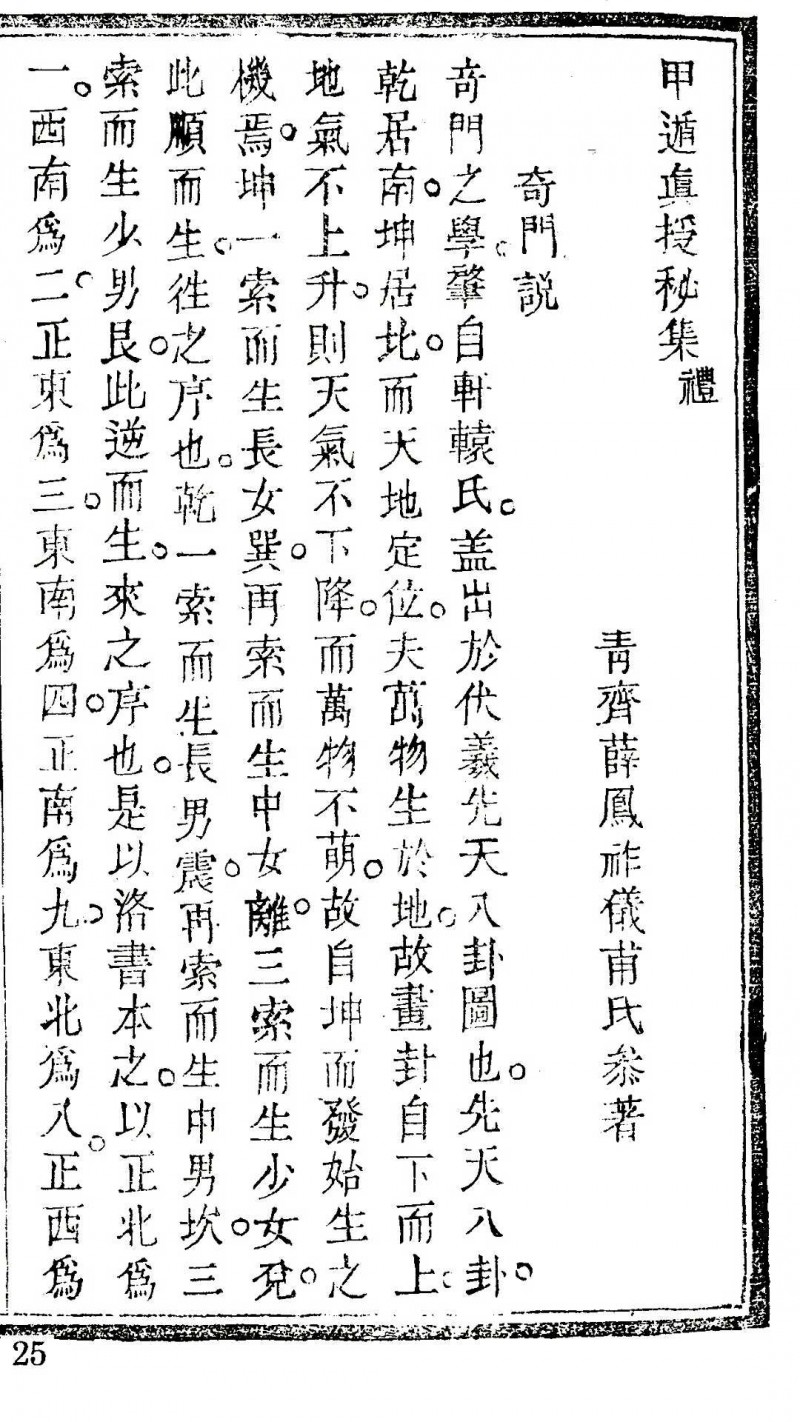 甲遁眞授秘集禮
青齊薛鳳祚儀甫氏叅著
奇門説
奇門之學。肇自軒轅氏。盖出於伏羲先天八卦圖也。先天八卦。
乾居南。坤居北。而天地定位。夫萬物生於地。故畫卦自下而上。
地氣不上升。則天氣不下降。而萬物不萌。故自坤而發始生之
機焉。坤一索而生長女巽。再索而生中女離。三索而生少女兌。
此順而生。徃之序也。乾一索而生長男震。再索而生中男坎。三
索而生少男艮。此逆而生。來之序也。是以洛書本之。以正北爲
一。西南爲二。正東爲三。東南爲四。正南爲九。東北爲八。正西爲
25